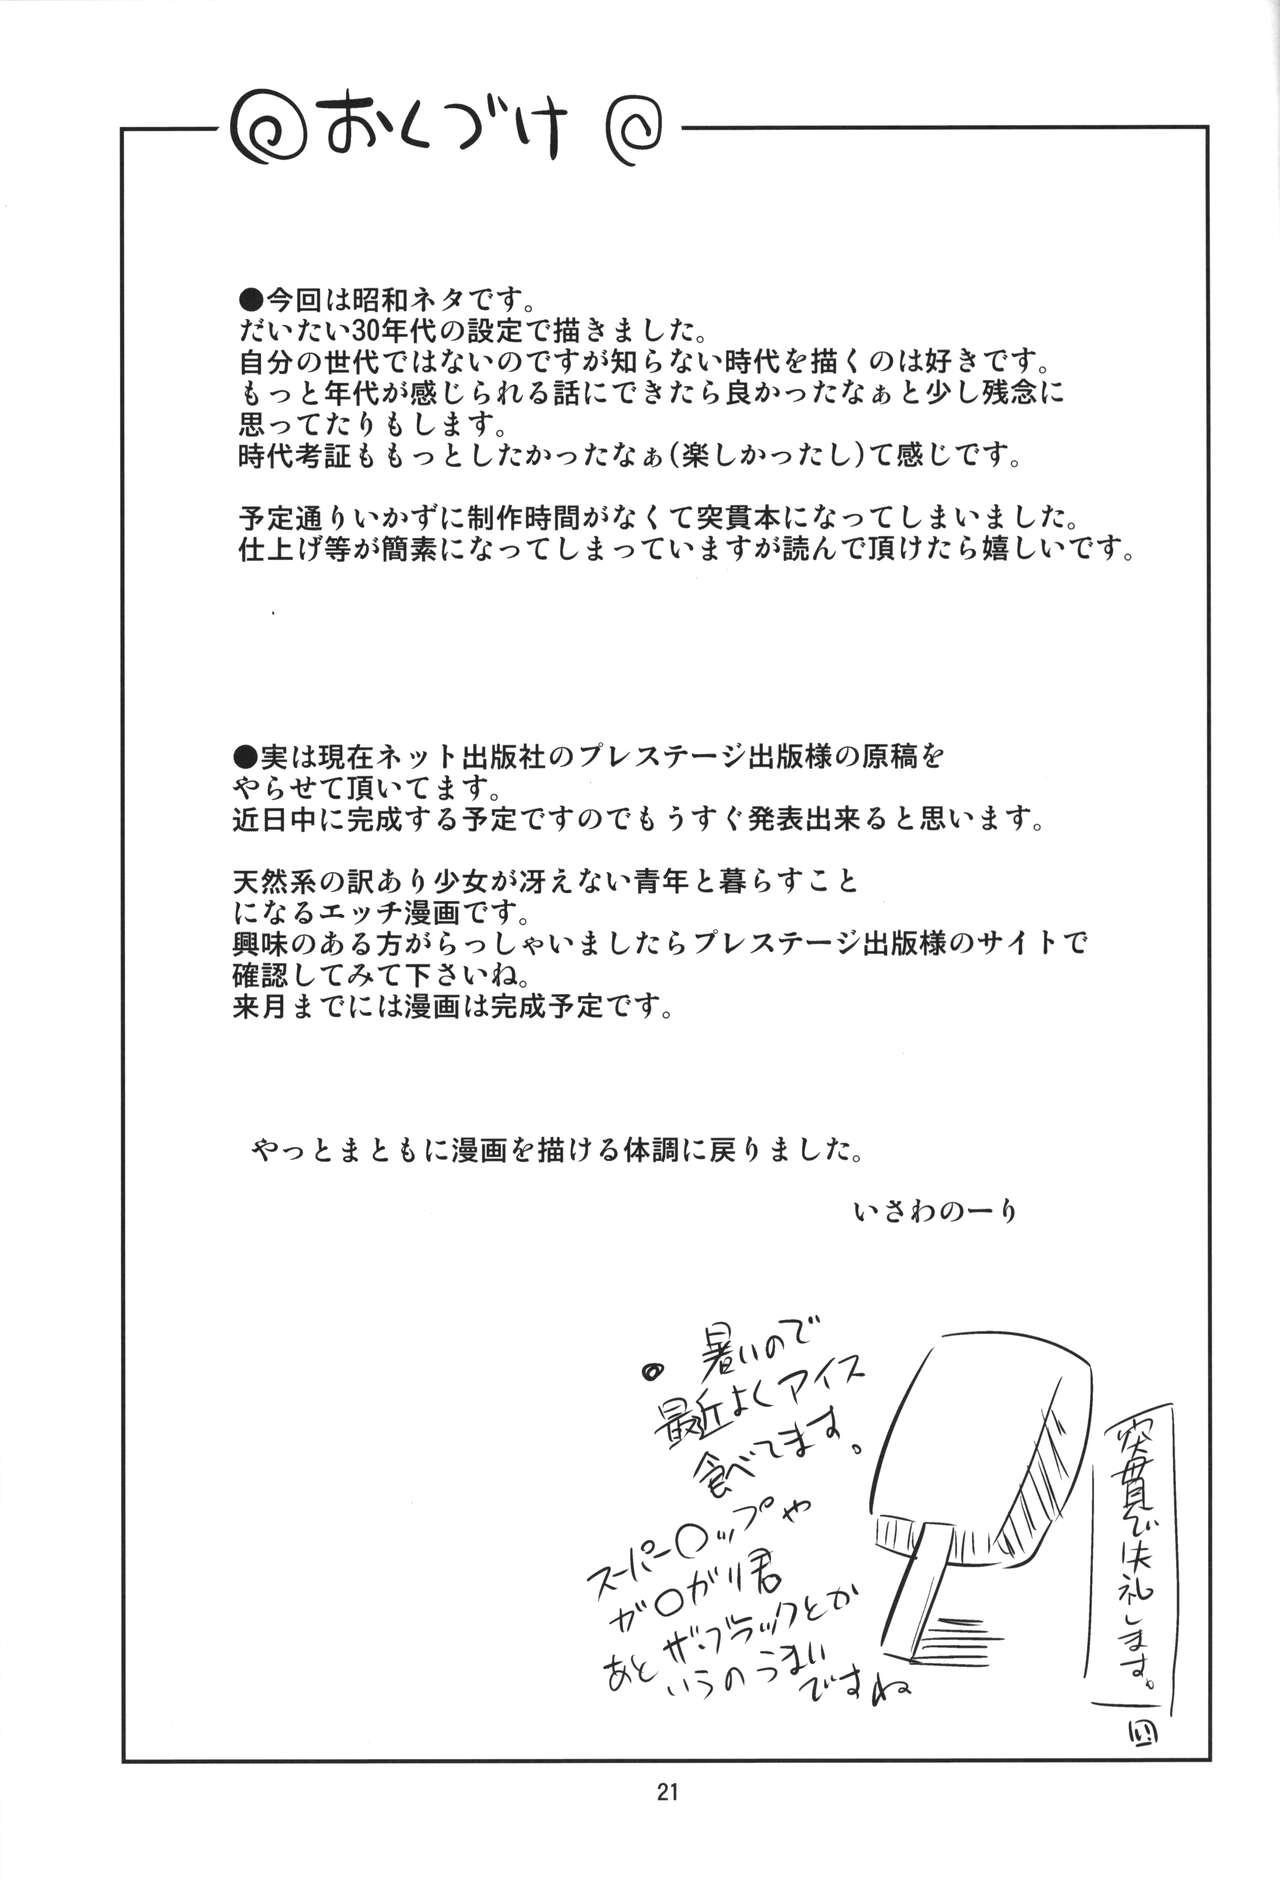 おくづけ
●今回は昭和ネタです。
だいたい30年代の設定で描きました。
自分の世代ではないのですが知らない時代を描くのは好きです。
もっと年代が感じられる話にできたら良かったなぁと少し残念に
思ってたりもします。
時代考証ももっとしたかったなぁ(楽しかったし)て感じです。
予定通りいかずに制作時間がなくて突貫本になってしまいました。
仕上げ等が簡素になってしまっていますが読んで頂けたら嬉しいです。
●実は現在ネット出版社のプレステージ出版様の原稿を
やらせて頂いてます。
近日中に完成する予定ですのでもうすぐ発表出来ると思います。
天然系の訳あり少女が冴えない青年と暮らすこと
になるエッチ漫画です。
興味のある方がらっしゃいましたらプレステージ出版様のサイトで
確認してみて下さいね。
来月までには漫画は完成予定です。
やっとまともに漫画を描ける体調に戻りました。
いさわのーり
暑いので
最近よくアイス
食べてます。
スーパー○ップや
ガ○ガリ君
あとザ・ブラックとか
いうのうまい
ですね
突貫で失礼します。
21